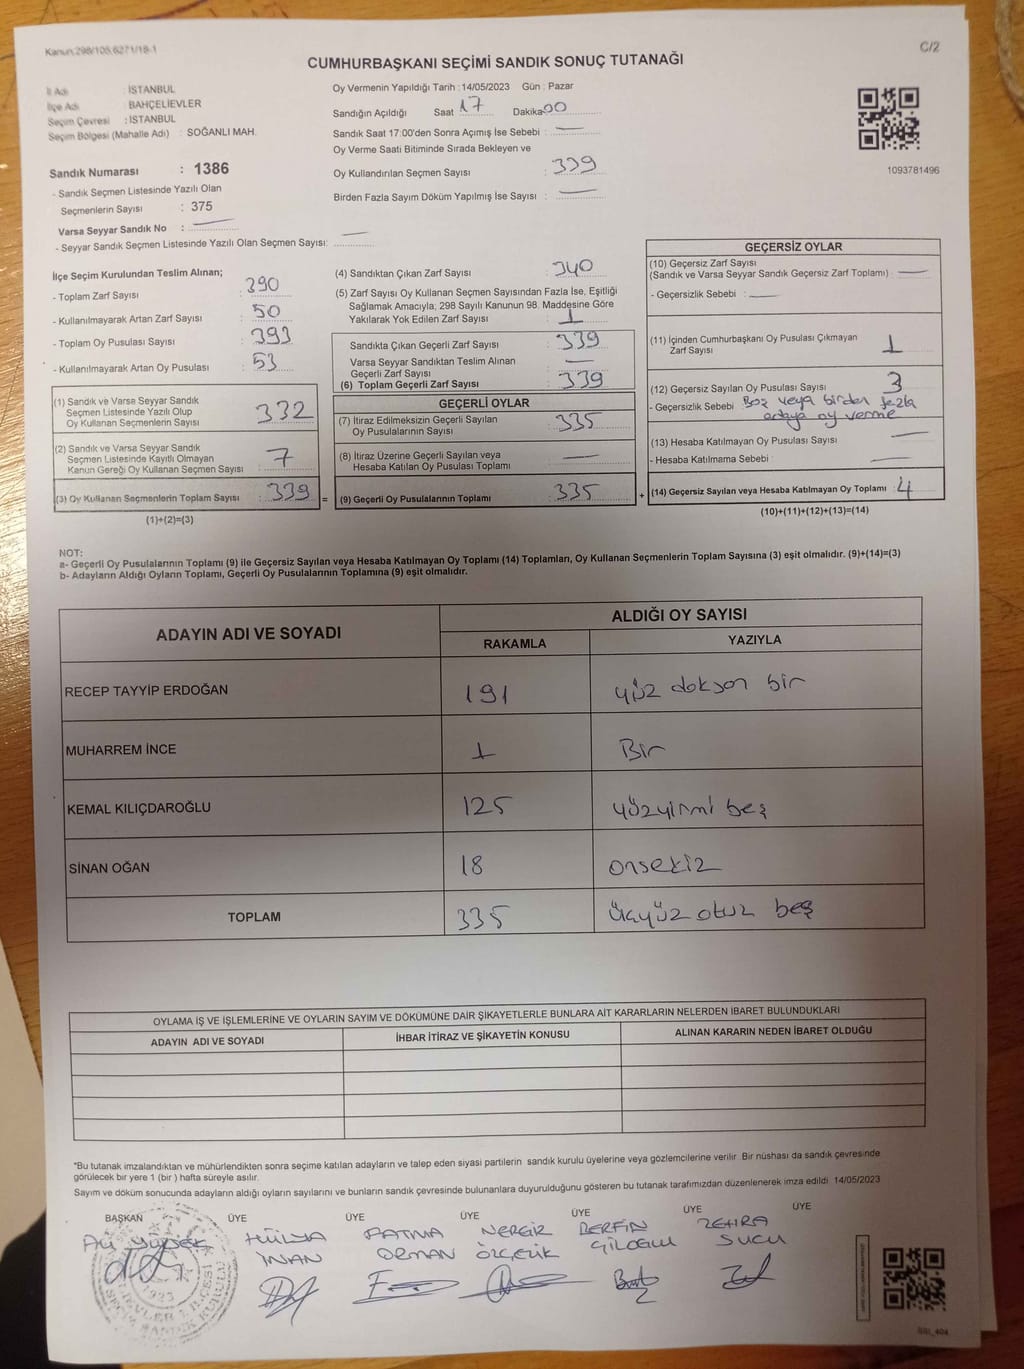 Kanun.298/105,6271/18-1
C/2
CUMHURBAŞKANI SEÇİMİ SANDIK SONUÇ TUTANAĞI
İl Adı : İSTANBUL
İlçe Adı : BAHÇELİEVLER
Seçim Çevresi : İSTANBUL
Seçim Bölgesi (Mahalle Adı) : SOĞANLI MAH.
Sandık Numarası : 1386
- Sandık Seçmen Listesinde Yazılı Olan
Seçmenlerin Sayısı : 375
Varsa Seyyar Sandık No :
- Seyyar Sandık Seçmen Listesinde Yazılı Olan Seçmen Sayısı:
Oy Vermenin Yapıldığı Tarih : 14/05/2023 Gün : Pazar
Sandığın Açıldığı Saat 17 Dakika 00
Sandık Saat 17:00'den Sonra Açımış İse Sebebi :
Oy Verme Saati Bitiminde Sırada Bekleyen ve
Oy Kullandırılan Seçmen Sayısı : 339
Birden Fazla Sayım Döküm Yapılmış İse Sayısı :
1093781496
İlçe Seçim Kurulundan Teslim Alınan;
- Toplam Zarf Sayısı : 390
- Kullanılmayarak Artan Zarf Sayısı : 50
- Toplam Oy Pusulası Sayısı : 393
- Kullanılmayarak Artan Oy Pusulası : 53
(1) Sandık ve Varsa Seyyar Sandık
Seçmen Listesinde Yazılı Olup
Oy Kullanan Seçmenlerin Sayısı : 332
(2) Sandık ve Varsa Seyyar Sandık
Seçmen Listesinde Kayıtlı Olmayan
Kanun Gereği Oy Kullanan Seçmen Sayısı : 7
(3) Oy Kullanan Seçmenlerin Toplam Sayısı : 339 =
(1)+(2)=(3)
(4) Sandıktan Çıkan Zarf Sayısı : 340
(5) Zarf Sayısı Oy Kullanan Seçmen Sayısından Fazla İse, Eşitliği
Sağlamak Amacıyla; 298 Sayılı Kanunun 98. Maddesine Göre
Yakılarak Yok Edilen Zarf Sayısı : 1
Sandıkta Çıkan Geçerli Zarf Sayısı : 339
Varsa Seyyar Sandıktan Teslim Alınan
Geçerli Zarf Sayısı :
(6) Toplam Geçerli Zarf Sayısı : 339
GEÇERLİ OYLAR
(7) İtiraz Edilmeksizin Geçerli Sayılan
Oy Pusulalarının Sayısı : 335
(8) İtiraz Üzerine Geçerli Sayılan veya
Hesaba Katılan Oy Pusulası Toplamı :
(9) Geçerli Oy Pusulalarının Toplamı : 335 +
GEÇERSİZ OYLAR
(10) Geçersiz Zarf Sayısı
(Sandık ve Varsa Seyyar Sandık Geçersiz Zarf Toplamı) :
- Geçersizlik Sebebi :
(11) İçinden Cumhurbaşkanı Oy Pusulası Çıkmayan
Zarf Sayısı : 1
(12) Geçersiz Sayılan Oy Pusulası Sayısı : 3
- Geçersizlik Sebebi Boş veya birden fazla
adaya oy verme
(13) Hesaba Katılmayan Oy Pusulası Sayısı :
- Hesaba Katılmama Sebebi :
(14) Geçersiz Sayılan veya Hesaba Katılmayan Oy Toplamı : 4
(10)+(11)+(12)+(13)=(14)
NOT:
a- Geçerli Oy Pusulalarının Toplamı (9) ile Geçersiz Sayılan veya Hesaba Katılmayan Oy Toplamı (14) Toplamları, Oy Kullanan Seçmenlerin Toplam Sayısına (3) eşit olmalıdır. (9)+(14)=(3)
b- Adayların Aldığı Oyların Toplamı, Geçerli Oy Pusulalarının Toplamına (9) eşit olmalıdır.
ADAYIN ADI VE SOYADI
ALDIĞI OY SAYISI
RAKAMLA YAZIYLA
RECEP TAYYİP ERDOĞAN 191 yüz doksan bir
MUHARREM İNCE 1 Bir
KEMAL KILIÇDAROĞLU 125 yüzyirmi beş
SİNAN OĞAN 18 onsekiz
TOPLAM 335 üçyüz otuz beş
OYLAMA İŞ VE İŞLEMLERİNE VE OYLARIN SAYIM VE DÖKÜMÜNE DAİR ŞİKAYETLERLE BUNLARA AİT KARARLARIN NELERDEN İBARET BULUNDUKLARI
ADAYIN ADI VE SOYADI İHBAR İTİRAZ VE ŞİKAYETİN KONUSU ALINAN KARARIN NEDEN İBARET OLDUĞU
*Bu tutanak imzalandıktan ve mühürlendikten sonra seçime katılan adayların ve talep eden siyasi partilerin sandık kurulu üyelerine veya gözlemcilerine verilir. Bir nüshası da sandık çevresinde
görülecek bir yere 1 (bir ) hafta süreyle asılır.
Sayım ve döküm sonucunda adayların aldığı oyların sayılarını ve bunların sandık çevresinde bulunanlara duyurulduğunu gösteren bu tutanak tarafımızdan düzenlenerek imza edildi. 14/05/2023
BAŞKAN ÜYE ÜYE ÜYE ÜYE ÜYE ÜYE
Ali HÜLYA FATMA BERFİN ZEHRA
İNAN ORMAN SUCU